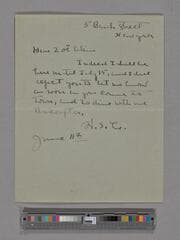 5 Bank Street
New York
Indeed I shall be
here until July 15, and I shall
expect you to let me know
as soon as you come to
town, and to dine with me
June 11th